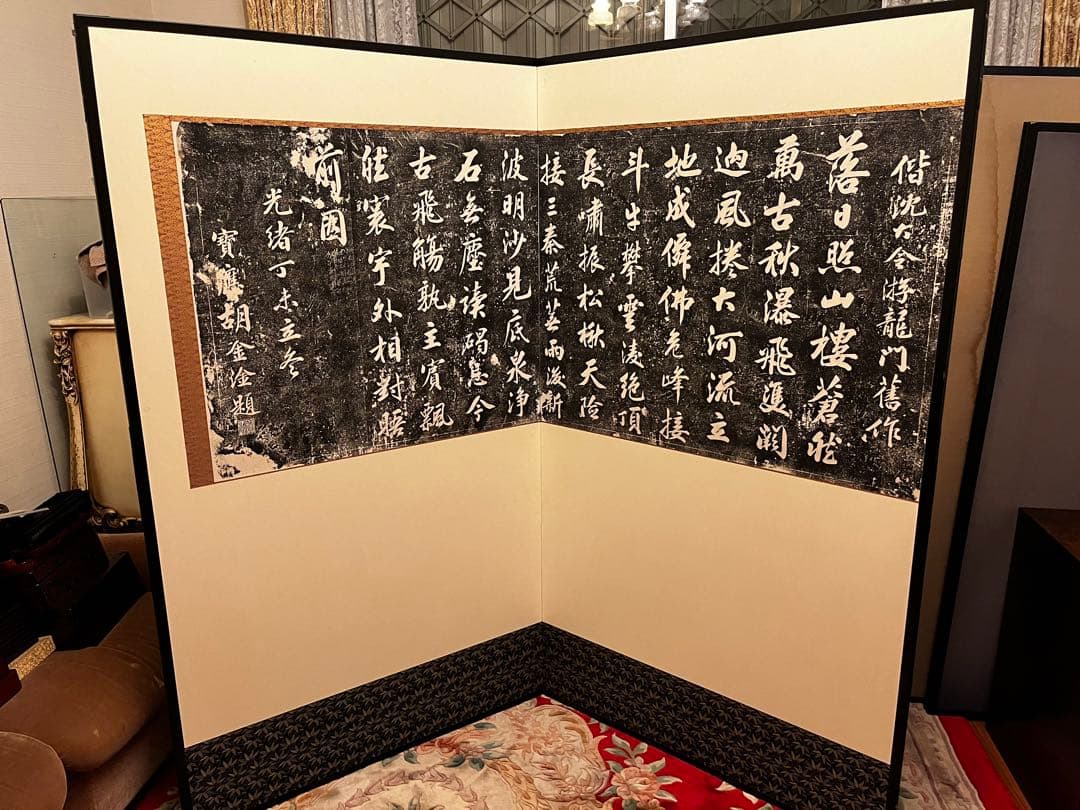 偕沈大令游龍門舊作
落日照山樓蒼然
萬古秋瀑飛雙闕
逈風捲大河流立
地成僊佛危峰接
斗牛攀雲凌絕頂
長嘯振松楸天險
接三秦荒雨後新
波明沙見底泉淨
石無塵讀碣悲今
古飛觴孰主賓飄
然寰宇外相對晤
前因
光緒丁未立冬
寶應胡金淦題